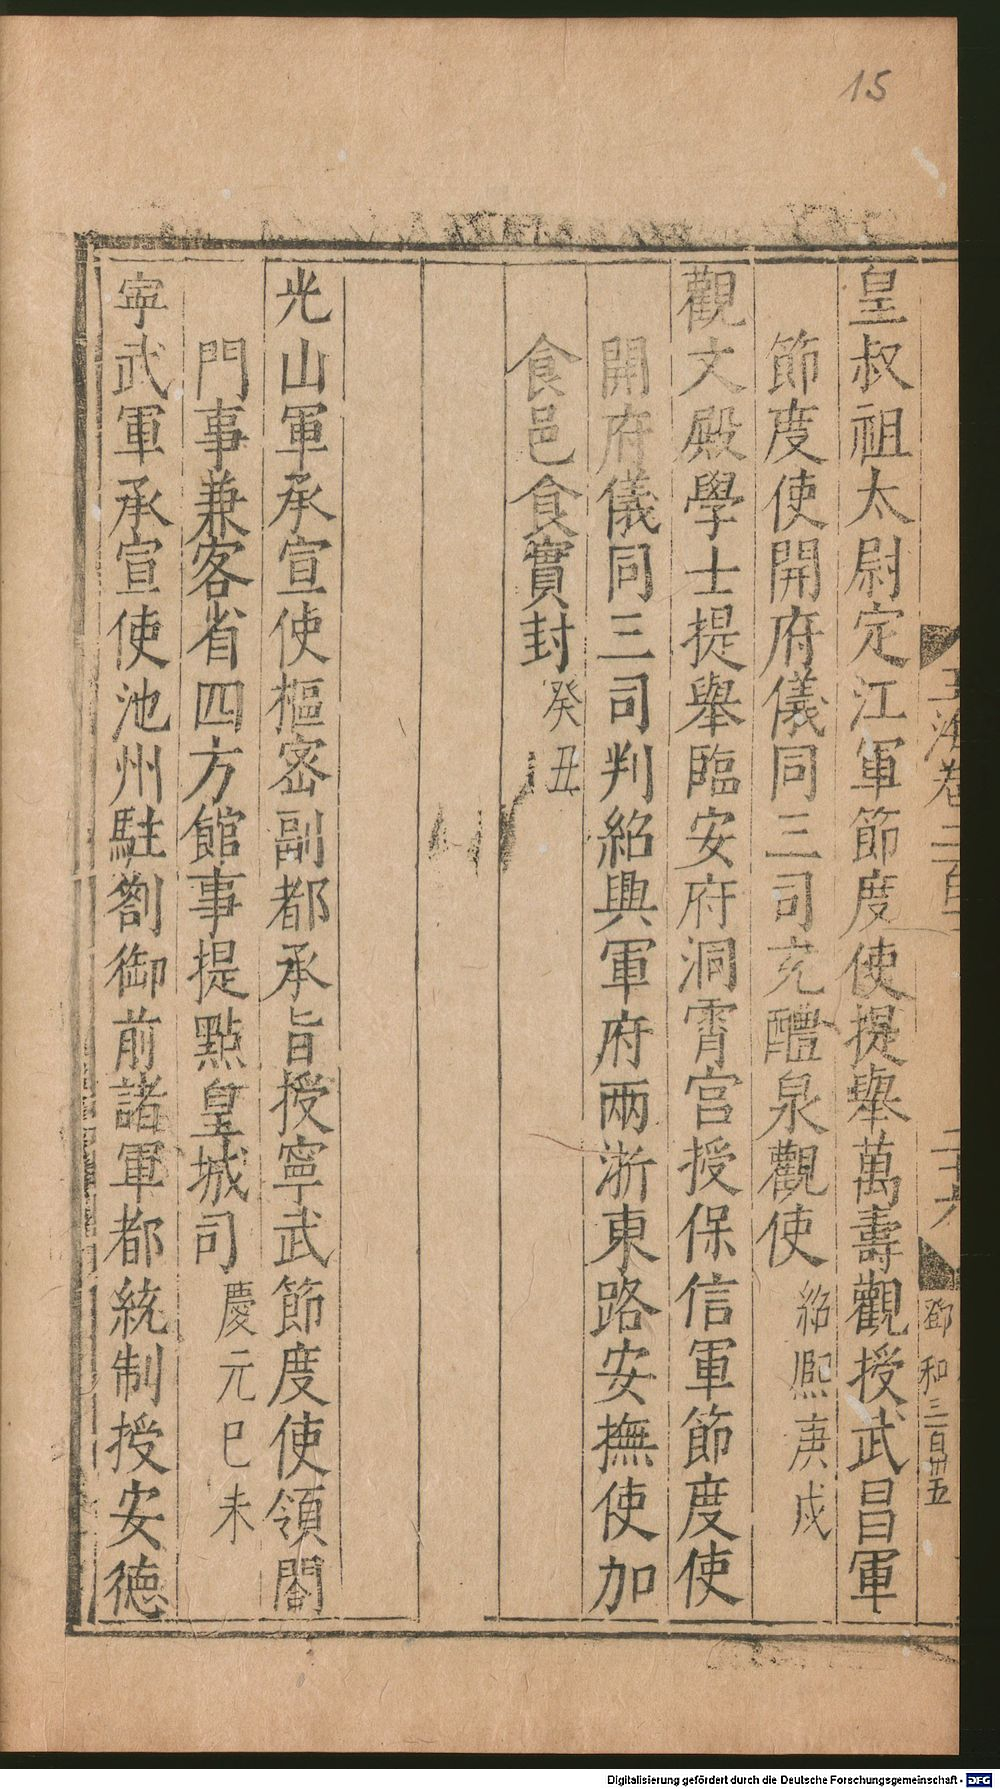 15
皇叔祖太尉定江軍節度使提舉萬壽觀授武昌軍
節度使開府儀同三司充醴泉觀使紹熙庚戌
觀文殿學士提舉臨安府洞霄宮授保信軍節度使
開府儀同三司判紹興軍府兩浙東路安撫使加
食邑食實封癸丑
光山軍承宣使樞密副都承旨授寧武節度使領閤
門事兼客省四方館事提點皇城司慶元巳未
寧武軍承宣使池州駐劄御前諸軍都統制授安德
Digitalisierung gefördert durch die Deutsche Forschungsgemeinschaft - DFG